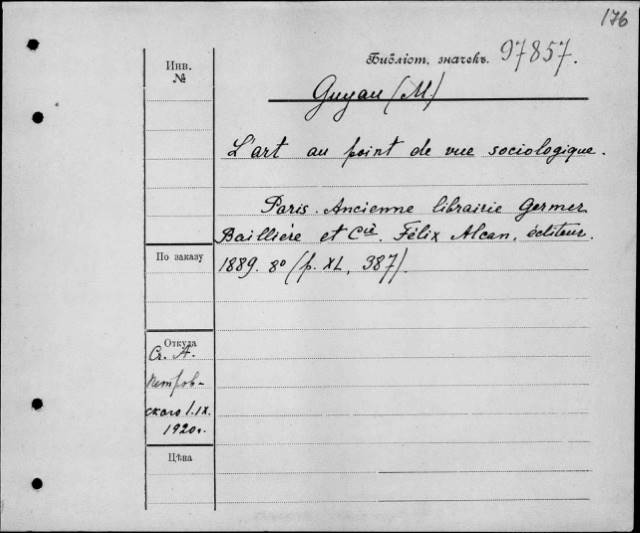 176
Библіот. значекъ. 97857.
Инв.
№
Guyau (M.)
L'art au point de vue sociologique.
Paris. Ancienne librairie Germer
Baillière et Cie. Félix Alcan, éditeur.
1889. 8° (p. XL, 387).
По заказу
Откуда
Ст. А.
Петров-
ского 1.IX.
1920 г.
Цѣна